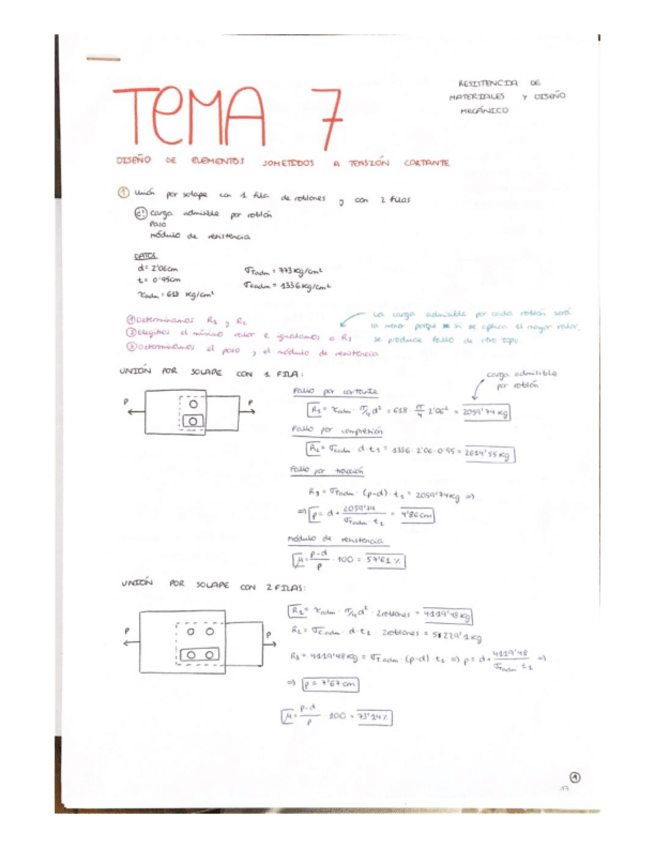 RESISTENCIA DE
MATERIALES Y DISEÑO
MECÁNICO
TEMA 7
DISEÑO DE ELEMENTOS SOMETIDOS A TENSIÓN CORTANTE
① Unión por solape con 1 fila de roblones y con 2 filas
carga admisible por roblón
Paso
módulo de resistencia
DATOS
d = 2'06cm
t = 0'95cm
τadm = 618 Kg/cm²
σTadm = 773 Kg/cm²
σcadm = 1336 Kg/cm²
① Determinamos R₁ y R₂
② Elegimos el mínimo valor e igualamos a R₃
③ Determinamos el paso y el módulo de resistencia
La carga admisible por cada roblón será
la menor porque si se aplica el mayor valor,
se produce fallo de otro tipo.
UNIÓN POR SOLAPE CON 1 FILA:
carga admisible
por roblón
P
P
Fallo por cortante
R₁ = τadm · π/4 d² = 618 · π/4 2'06² = 2059'74 Kg
Fallo por compresión
R₂ = σcadm · d · t₁ = 1336 · 2'06 · 0'95 = 2614'55 Kg
Fallo por tracción
R₃ = σTadm · (p-d) · t₁ = 2059'74 Kg ⇒
⇒ p = d + 2059'74 / σTadm · t₁ = 4'86 cm
módulo de resistencia
μ = p-d / p · 100 = 57'61 %
UNIÓN POR SOLAPE CON 2 FILAS:
P
P
R₁ = τadm · π/4 d² · 2roblones = 4119'48 Kg
R₂ = σcadm · d · t₁ · 2roblones = 5229'1 Kg
R₃ = 4119'48 Kg = σTadm · (p-d) · t₁ ⇒ p = d + 4119'48 / σTadm t₁ ⇒
⇒ p = 7'67 cm
μ = p-d / p · 100 = 73'14 %
①